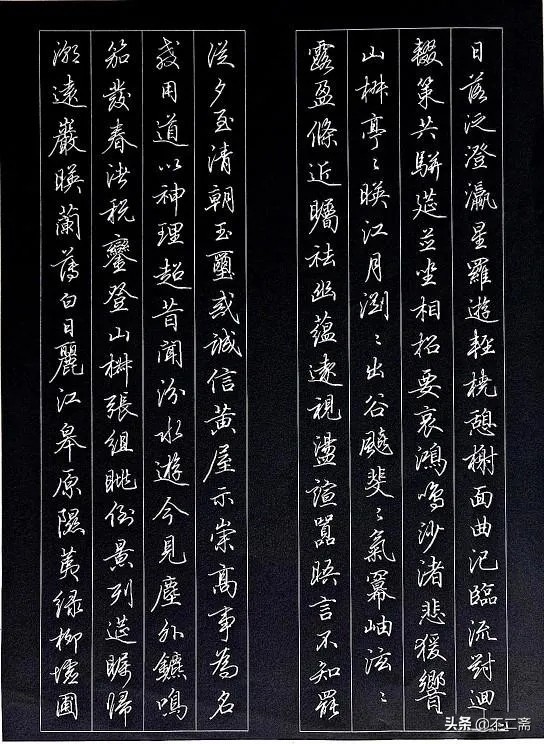 日落泛澄瀛星羅遊輕橈憩榭面曲汜臨流對迴
輟策共駢筵並坐相招要哀鴻鳴沙渚悲猨響
山椒亭〻暎江月瀏〻出谷飇斐〻氣冪岫泫〻
露盈條近矚祛幽蘊遠視盪諠囂晤言不知罷
從夕至清朝玉璽戒誠信黃屋示崇高事為名
教用道以神理超昔聞汾水遊今見塵外鑣鳴
笳發春渚稅鑾登山椒張組眺倒景列筵矚歸
潮遠巖暎蘭薄白日麗江皋原隰荑綠柳墟圃
头条 @不二斋